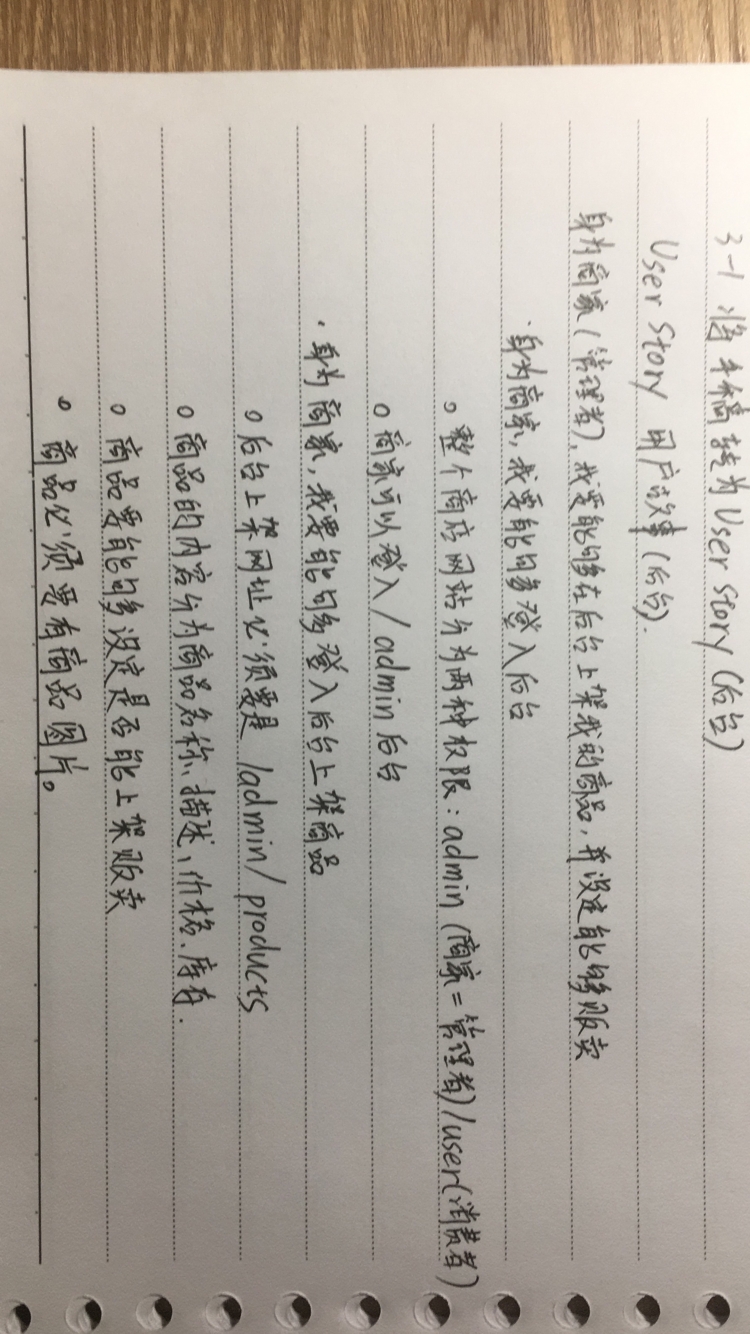 3-1 将手稿转为 User Story (后台)
User Story 用户故事 (后台).
身为商家(管理者), 我要能够在后台上架我的商品, 并设定能够贩卖
· 身为商家, 我要能够登入后台
。整个商店网站分为两种权限: admin (商家=管理者) / user(消费者)
。商家可以登入/admin后台
· 身为商家, 我要能够登入后台上架商品
。后台上架网址必须要是 /admin/products
。商品的内容分为商品名称、描述、价格、库存.
。商品要能够设定是否能上架贩卖
。商品必须要有商品图片。